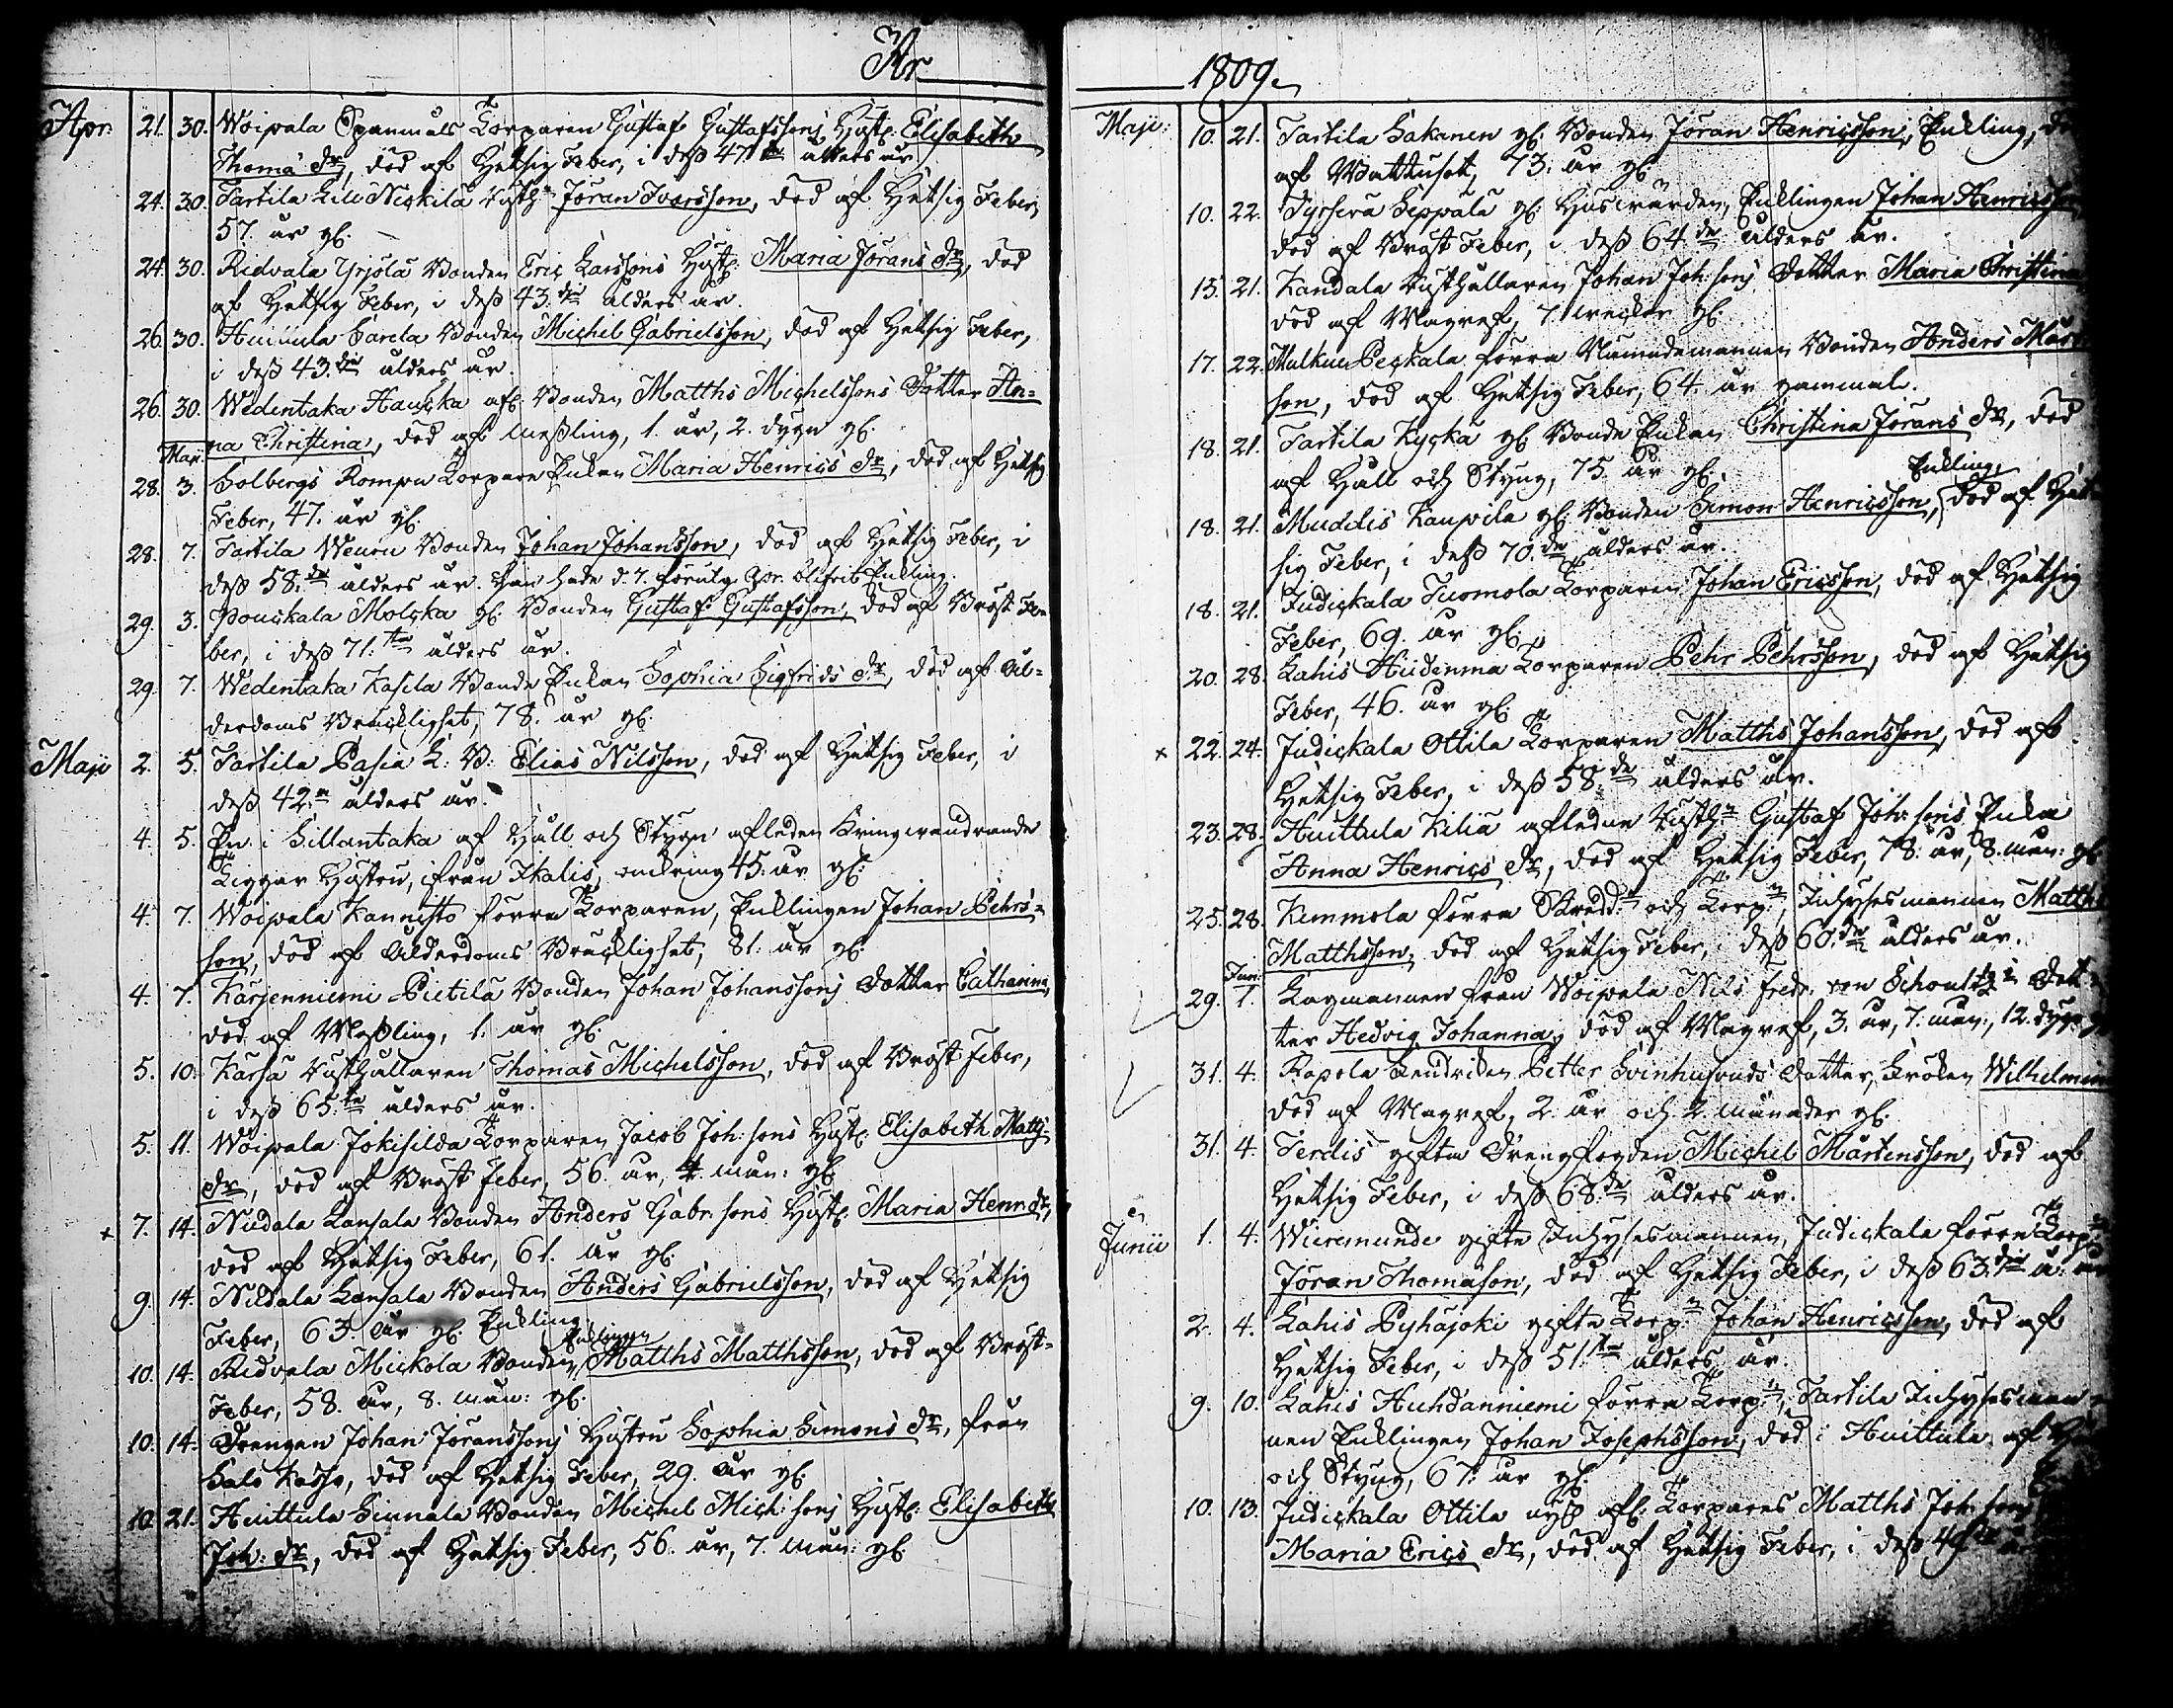 År
Apr. 21. 30. Woipala Spannmåls Torparen Gustaf Gustafssons Hust. Elisabeth
Thomä dr, död af Hetsig Feber, i deß 47de ålders år.
24. 30. Tartila Niskilä Rusth. Jöran Ivarsson, död af Hetsig Feber,
57. år gl.
24. 30. Ridvala Yrjölä Bonden Eric Larssons Hust. Maria Jörans dr, död
af Hetsig Feber, i deß 43.die ålders år.
26. 30. Huittula Bonden Michel Gabrielsson, död af Hetsig Feber,
i deß 43.die ålders år.
26. 30. Wedentaka Haucka afl. Bonden Matths Michelssons Dotter An=
na Christina, död af Meßling, 1. år, 2. dygn gl.
Maji.
28. 3. Solbergs Rompu Torpare Enkan Maria Henrics dr, död af Hetsig
Feber, 47. år gl.
28. 7. Tartila Bonden Johan Johansson, död af Hetsig Feber, i
deß 58.de ålders år. Han hade d. 7. förutg. Apr. blifvit Enkling.
29. 3. Pouckala Molcka gl. Bonden Gustaf Gustafsson, död af Bröst Fe=
ber, i deß 71.sta ålders år.
29. 7. Wedentaka Kasila Bonde Enkan Sophia Sigfrids dr, död af Ål=
derdoms Bräcklighet, 78. år gl.
Maji 2. 5. Tartila Pasia L: B: Elias Nilsson, död af Hetsig Feber, i
deß 42.a ålders år.
4. 5. En i Sillantaka af Håll och Stygn afleden Kringvandrande
Tiggar Hustru, ifrån Ikalis, omkring 45. år gl:
4. 7. Woipala Kannisto förra Torparen, Enklingen Johan Pehrs=
son, död af Ålderdoms Bräcklighet, 81. år gl.
4. 7. Karjenniemi Pietilä Bonden Johan Johanssons Dotter Catharina,
död af Meßling, 1. år gl.
5. 10. Karsa Rusthållaren Thomas Michelsson, död af Bröst Feber,
i deß 65.te ålders år.
5. 11. Woipala Jokisilda Torparen Jacob Joh:sons Hust. Elisabeth Matts
dr, död af Bröst Feber, 56. år, 4. mån: gl.
x 7. 14. Nudala Lansala Bonden Anders Gabr:sons Hust. Maria Henr. dr,
död af Hetsig Feber, 61. år gl.
9. 14. Nudala Lansala Bonden Anders Gabrielsson, död af Hetsig
Feber, 63. år gl. Enkling
10. 14. Ridvala Mickola Bonden, Enklingen Matths Matthsson, död af Bröst=
Feber, 58. år, 8. mån: gl.
10. 14. Drengen Johan Joranssons Hustru Sophia Simons dr, från
Salo Kasso, död af Hetsig Feber, 29. år gl.
10. 21. Huittula Bonden Michel Mich:sons Hust. Elisabeth
Joh: dr, död af Hetsig Feber, 56. år, 7. mån: gl.
1809.
Maji: 10. 21. Tartila Sakanen gl. Bonden Jöran Henricsson, Enkling,
af Wattusot, 73. år gl.
10. 22. Tyrserä Seppälä gl. Husvärden, Enklingen Johan Henricsson
död af Bröst Feber, i deß 64.de ålders år.
15. 21. Kandala Rusthållaren Johan Joh:sons Dotter Maria Christina
död af Magref, 7. weckor gl.
17. 22. Peckala förra Nämndemannen Bonden Anders
son, död af Hetsig Feber, 64. år gammal.
18. 21. Tartila Kycka gl. Bonde Enkan Christina Jörans dr, död
af Håll och Styng, 75. år gl.
18. 21. Muddis Kaupila gl. Bonden Simon Henricsson, Enkling, död af Het=
sig Feber, i deß 70.de ålders år.
18. 21. Judickala Tuomola Torparen Johan Ericsson, död af Hetsig
Feber, 69. år gl.
20. 28. Lahis Hiidenma Torparen Pehr Pehrsson, död af Hetsig
Feber, 46. år gl.
x 22. 24. Judickala Ottila Torparen Matths Johansson, död af
Hetsig Feber, i deß 58.de ålders år.
23. 28. Huittula Kiliä afledne Rusth. Gustaf Joh:sons Enka
Anna Henrics dr, död af Hetsig Feber, 78. år, 8. mån: gl
25. 28. Kemmola förra Skrädd. och Torp., Inhysesmannen Matths
Matthsson, död af Hetsig Feber, i deß 60.de ålders år.
Jun.
29. 1. Lagmannen från Woipala Nils Fredr. von Schoultz's Dot=
ter Hedvig Johanna, död af Magref, 3. år, 7. mån:, 12. dygn
31. 4. Rapola Petter Svinhufvuds Dotter, Fröken Wilhelmin
död af Magref, 2. år och 2. månader gl.
31. 4. Terdis gifta Drengfogden Michel Mårtensson, död af
Hetsig Feber, i deß 68.de ålders år.
Junii 1. 4. Wieremunde gifta Inhysesmannen, Judickala förra Torp.
Jöran Thomasson, död af Hetsig Feber, i deß 63.die å: år
2. 4. Lahis Pyhäjoki gifta Torp. Johan Henricsson, död af
Hetsig Feber, i deß 51.sta ålders år.
9. 10. Lahis Huhdanniemi förra Torp., Tartila Inhysesman=
nen Enklingen Johan Josephsson, död i Huittula af
och Styng, 67. år gl.
10. 13. Judickala Ottila nyss afl. Torpares Matths Joh:sons
Maria Erics dr, död af Hetsig Feber, i deß